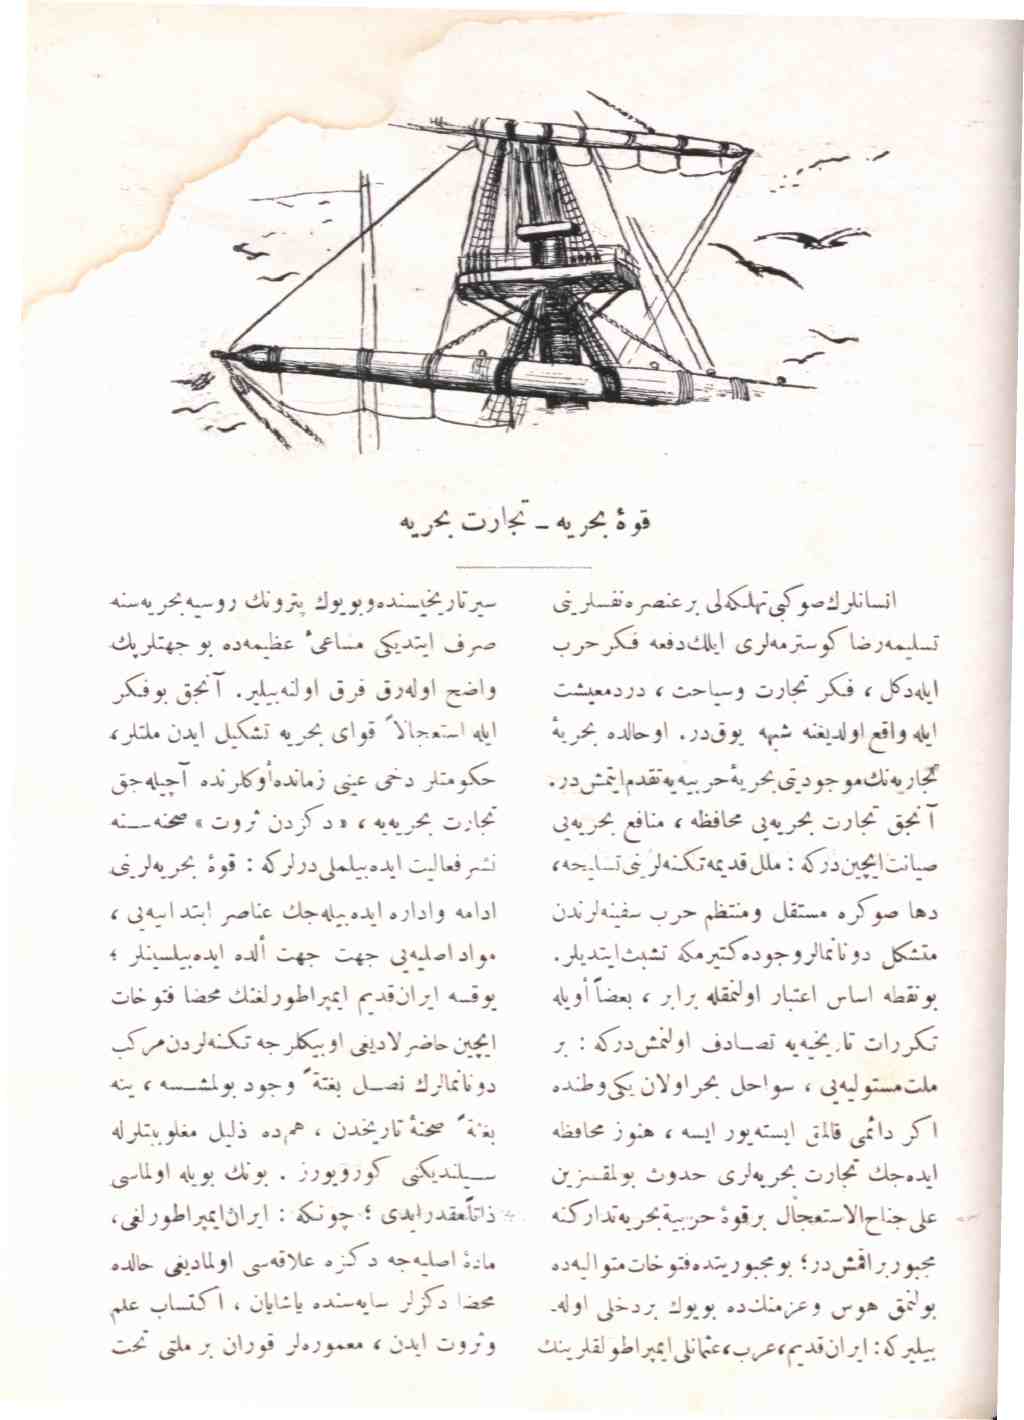 قوهٔ بحریه ـ تجارت بحریه
انسانلرك صو كبی تهلكه‌لی بر عنصره نفسلرینی
تسلیمه رضا كوسترمه‌لری ایلك دفعه فكر حرب
ایله دكل ، فكر تجارت وسیاحت ، درد معیشت
ایله واقع اولدیغنه شبهه یوقدر. اوحالده بحریهٔ
تجاریه‌نك موجودیتی بحریهٔ حربیه‌یه تقدم ایتمش در.
آنجق تجارت بحریه‌یی محافظه ، منافع بحریه‌یی
صیانت ایچین دركه : ملل قدیمه تكنه‌لرینی تسلیحه،
دها صوكره مستقل ومنتظم حرب سفینه‌لرندن
متشكل دونانمالر وجوده كتیرمكه تشبث ایتدیلر.
بونقطه اساس اعتبار اولنمقله برابر ، بعضاً اویله
تكررات تاریخیه‌یه تصادف اولنمش دركه : بر
ملت مستولیه‌یی ، سواحل بحر اولان یكی وطنده
اكر دائمی قالمق ایسته‌یور ایسه ، هنوز محافظه
ایده‌جك تجارت بحریه‌لری حدوث بولمقسزین
علی جناح الاستعجال بر قوهٔ حربیهٔ بحریه تداركنه
مجبور براقمش در؛ بو مجبوریتده فتوحات متوالیه‌ده
بولنمق هوس وعزمنك ده بویوك بر دخلی اوله‌ـ
بیلیركه: ایران قدیم، عرب، عثمانلی ایمپراطولقلرینك
سیر تاریخیسنده وبویوك پترونك روسیه بحریه‌سنه
صرف ایتدیكی مساعیٔ عظیمه‌ده بو جهتلر پك
واضح اوله‌رق فرق اولنه‌بیلیر. آنجق بوفكر
ایله استعجالاً قوای بحریه تشكیل ایدن ملتلر،
حكومتلر دخی عینی زمانده أوكلرنده آچیله‌جق
تجارت بحریه‌یه ، «دكزدن ثروت» صحنه‌سنه
نشر فعالیت ایده‌بیلملی‌درلركه : قوهٔ بحریه‌لرینی
ادامه واداره ایده‌بیله‌جك عناصر ابتدائیه‌یی ،
مواد اصلیه‌یی جهت جهت ألده ایده‌بیلسینلر ؛
یوقسه ایران قدیم ایمپراطورلغنك محضا فتوحات
ایچین حاضرلادیغی اوبیكلرجه تكنه‌لردن مركب
دونانمالرك نصل بغتةً وجود بولمشسه ، ینه
بغتةً صحنهٔ تاریخدن ، هم‌ده ذلیل مغلوبیتلرله
سیلندیكنی كورویورز . بونك بویله اولماسی
ذاتاً مقدر ایدی ؛ چونكه : ایران ایمپراطورلغی،
مادهٔ اصلیه‌جه دكزه علاقه‌سی اولمادیغی حالده
محضا دكزلر سایه‌سنده یاشایان ، اكتساب علم
وثروت ایدن ، معموره‌لر قوران بر ملتی تحت